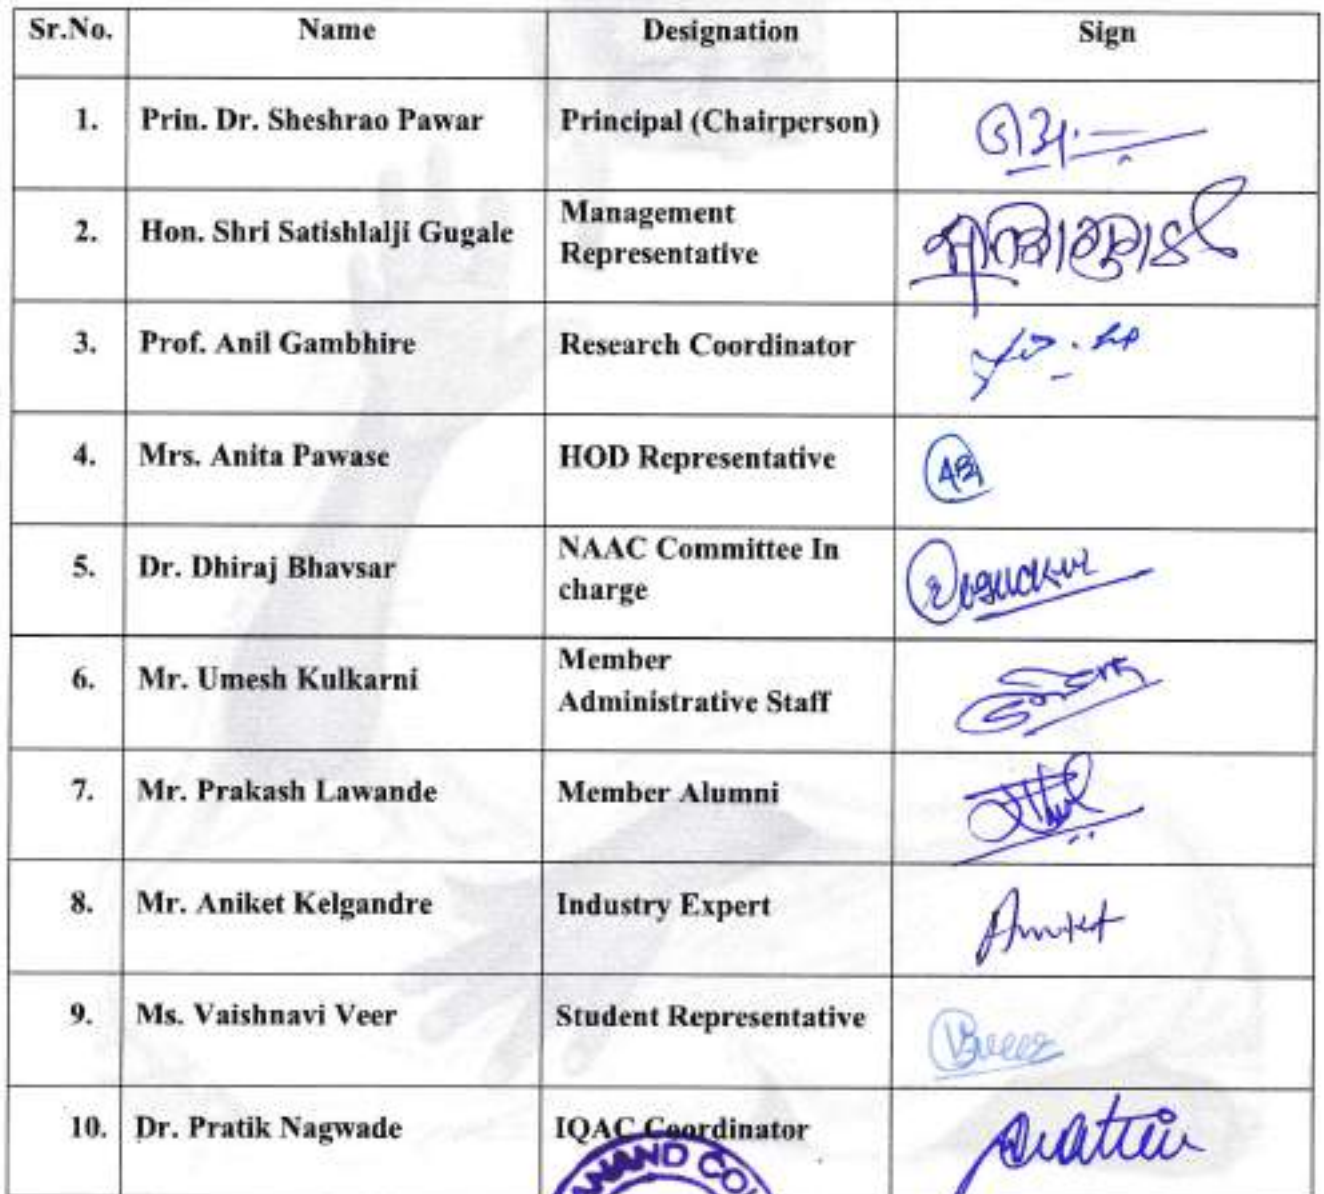 Sr.No. Name Designation Sign
1. Prin. Dr. Sheshrao Pawar Principal (Chairperson)
2. Hon. Shri Satishlalji Gugale Management
Representative
3. Prof. Anil Gambhire Research Coordinator
4. Mrs. Anita Pawase HOD Representative
5. Dr. Dhiraj Bhavsar NAAC Committee In
charge
6. Mr. Umesh Kulkarni Member
Administrative Staff
7. Mr. Prakash Lawande Member Alumni
8. Mr. Aniket Kelgandre Industry Expert Aniket
9. Ms. Vaishnavi Veer Student Representative
10. Dr. Pratik Nagwade IQAC Coordinator
ANAND CO